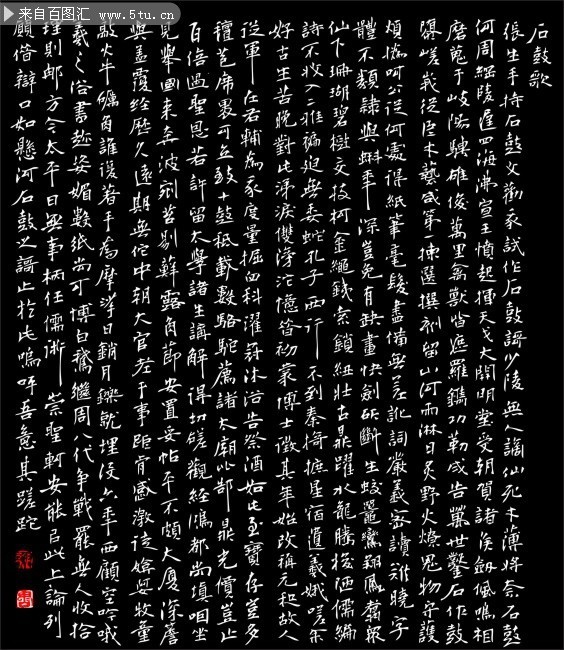 来自图汇 www.5tu.cn
石鼓歌
張生手持石鼓文勸我試作石鼓謌少陵無人謫仙死才薄將奈石鼓
何周綱陵遲四海沸宣王憤起揮天戈大開明堂受朝賀諸侯劍佩鳴相
磨蒐于岐陽騁雄俊萬里禽獸皆遮羅鐫功勒成告萬世鑿石作鼓
隳嵯峨從臣才藝咸第一揀選撰刻留山阿雨淋日炙野火燎鬼物守護
煩撝呵公從何處得紙本毫髮盡備無差訛詞嚴義密讀難曉字
體不類隸與蝌年深豈免有缺畫快劍斫斷生蛟鼉鸞翔鳳翥眾
仙下珊瑚碧樹交枝柯金繩鐵索鎖鈕壯古鼎躍水龍騰梭陋儒編
詩不收入二雅褊迫無委蛇孔子西行不到秦掎摭星宿遺羲娥嗟余
好古生苦晚對此涕淚雙滂沱憶昔初蒙博士徵其年始改稱元和故人
從軍在右輔為我度量掘臼科濯冠沐浴告祭酒如此至寶存豈多
氈苞席裹可立致十鼓祇載數駱駝薦諸太廟比郜鼎光價豈止
百倍過聖恩若許留太學諸生講解得切磋觀經鴻都尚填咽坐
見舉國來奔波剜苔剔蘚露角節安置妥帖平不頗大廈深簷
與蓋覆經歷久遠期無佗中朝大官老于事詎肯感激徒媕婀牧童
敲火牛礪角誰復著手為摩挲日銷月鑠就埋沒六年西顧空吟哦
羲之俗書趁姿媚數紙尚可博白鵝繼周八代爭戰罷無人收拾
理則那方今太平日無事柄任儒術崇聖軻安能㠯此上論列
願借辯口如懸河石鼓之謌止於此嗚呼吾意其蹉跎